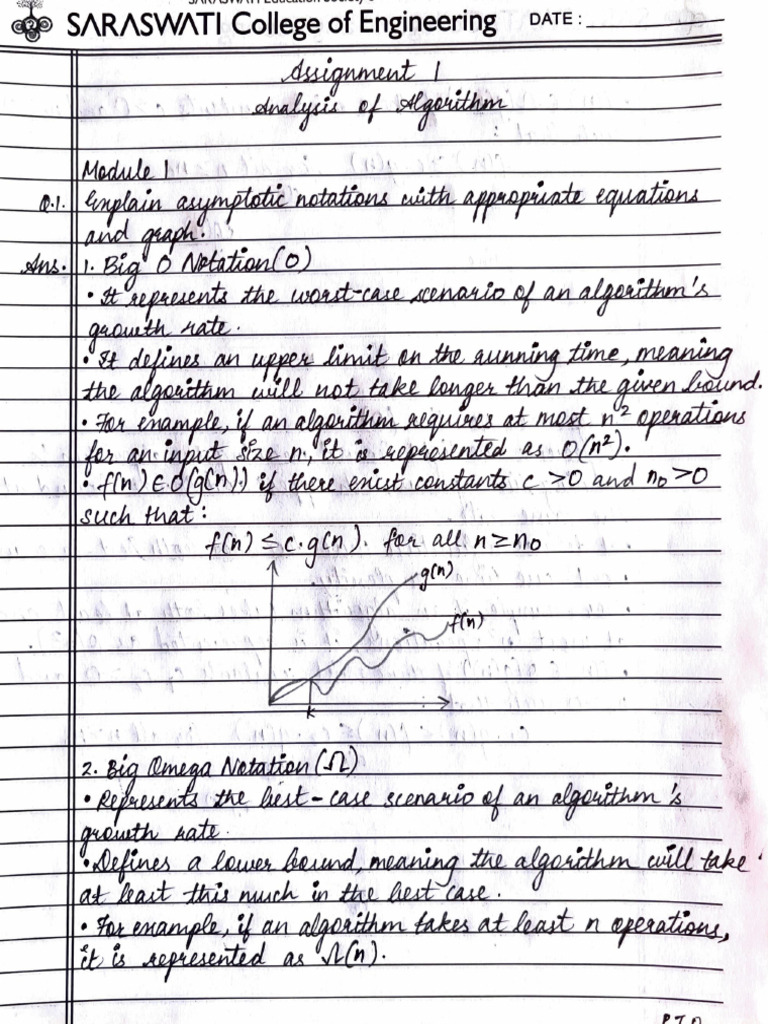 SARASWATI Education Society's
SARASWATI College of Engineering DATE :
Assignment 1
Analysis of Algorithm
Module 1
Q.1. Explain asymptotic notations with appropriate equations
and graph.
Ans. 1. Big O Notation (O)
• It represents the worst-case scenario of an algorithm's
growth rate.
• It defines an upper limit on the running time, meaning
the algorithm will not take longer than the given bound.
• For example, if an algorithm requires at most n² operations
for an input size n, it is represented as O(n²).
• f(n) ∈ O(g(n)) if there exist constants c > 0 and n₀ > 0
such that :
f(n) ≤ c.g(n). for all n ≥ n₀
g(n)
f(n)
K
2. Big Omega Notation (Ω)
• Represents the best-case scenario of an algorithm's
growth rate.
• Defines a lower bound, meaning the algorithm will take
at least this much in the best case.
• For example, if an algorithm takes at least n operations,
it is represented as Ω(n).
P T O